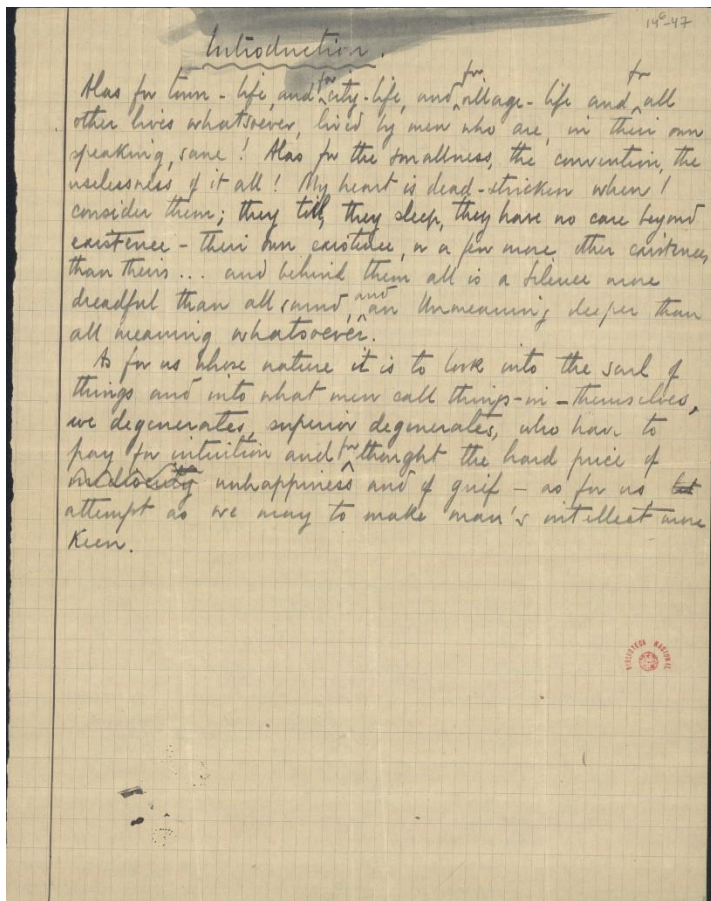 14⁶-47
Introduction.
Alas for town-life, and for city-life, and for village-life and for all
other lives whatsoever, lived by men who are, in their own
speaking, sane! Alas for the smallness, the convention, the
uselessness of it all! My heart is dead-stricken when I
consider them; they till, they sleep, they have no care beyond
existence - their own existence, or a few more other existences
than theirs... and behind them all is a Silence more
dreadful than all sound, and an Unmeaning deeper than
all meaning whatsoever.
As for us whose nature it is to look into the soul of
things and into what men call things-in-themselves,
we degenerates, superior degenerates, who have to
pay for intuition and for thought the hard price of
unhappiness and of grief - as for us but
attempt as we may to make man's intellect more
keen.
BIBLIOTECA NACIONAL